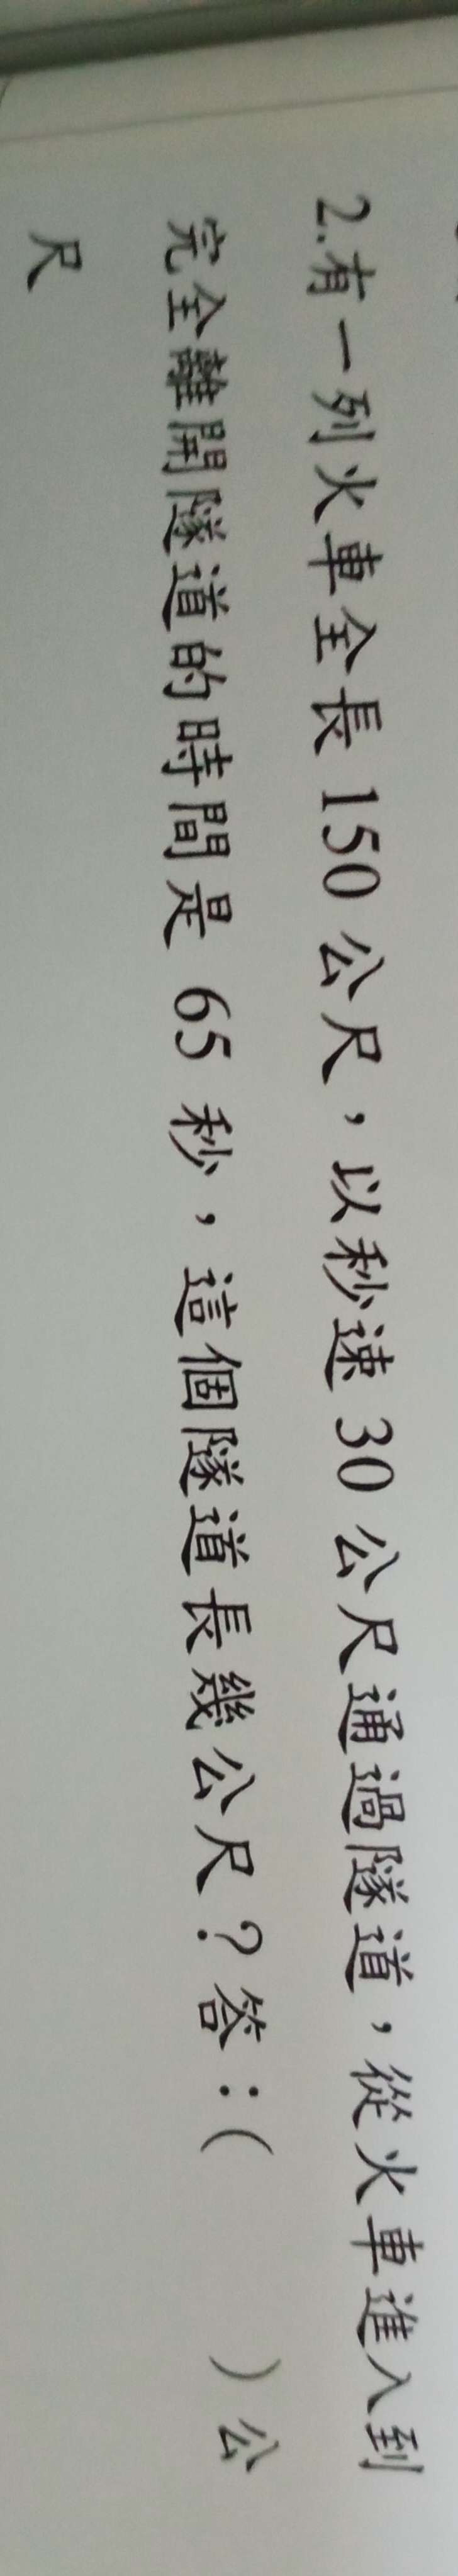 2.有一列火車全長 150 公尺，以秒速 30 公尺通過隧道，從火車進入到
完全離開隧道的時間是 65 秒，這個隧道長幾公尺？答：(　　　)公
尺